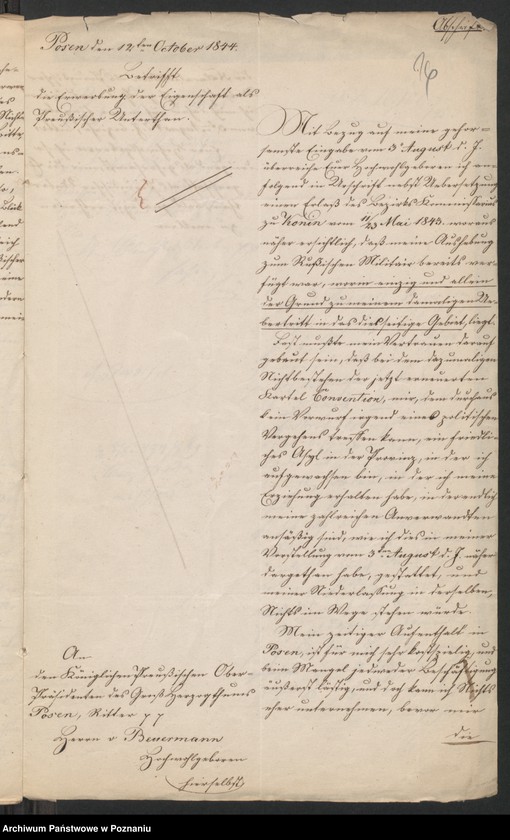 Abschrift.
76
Posen den 12ten October 1844.
Betrifft
die Erwerbung der Eigenschaft als
Preußischer Unterthan.
Mit Bezug auf meine gehor=
samste Eingabe vom 3t August d. J.
überreiche Euer Hochwohlgeboren ich an=
folgend in Urschrift nebst Uebersetzung
einen Erlaß des Bezirks Kommissarius
zu Konin vom 11/23 Mai 1843. woraus
näher ersichtlich, daß meine Aushebung
zum Rußischen Militair bereits ver=
fügt war, worin einzig und allein
der Grund zu meinem damaligen Ue=
bertritt in das diesseitige Gebiet, liegt.
Fest mußte mein Vertrauen darauf
gebaut sein, daß bei dem dazumaligen
Nichtbestehen der jetzt erneuerten
Kartel Convention, mir, dem durchaus
kein Vorwurf irgend eines politischen
Vergehens treffen kann, ein friedli=
ches Asyl in der Provinz, in der ich
aufgewachsen bin, in der ich meine
Erziehung erhalten habe, in der endlich
meine zahlreichen Anverwandten
ansäßig sind, wie ich dies in meiner
Vorstellung vom 3ten August d. J. näher
dargethan habe, gestattet, und
meiner Niederlassung in derselben,
Nichts im Wege stehen würde.
Mein zeitiger Aufenthalt in
Posen, ist für mich sehr kostspielig, und
beim Mangel jedweder Beschäftigung
äußerst lästig, und doch kann ich Nichts
eher unternehmen, bevor mir
die
An
den Königlichen Preußischen Ober=
Präsidenten des Groß Herzogthums
Posen, Ritter
Herrn v Beuermann
Hochwohlgeboren
hierselbst
Archiwum Państwowe w Poznaniu